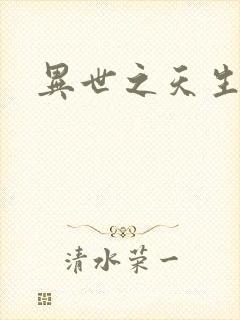 異世之天生
清水荣一